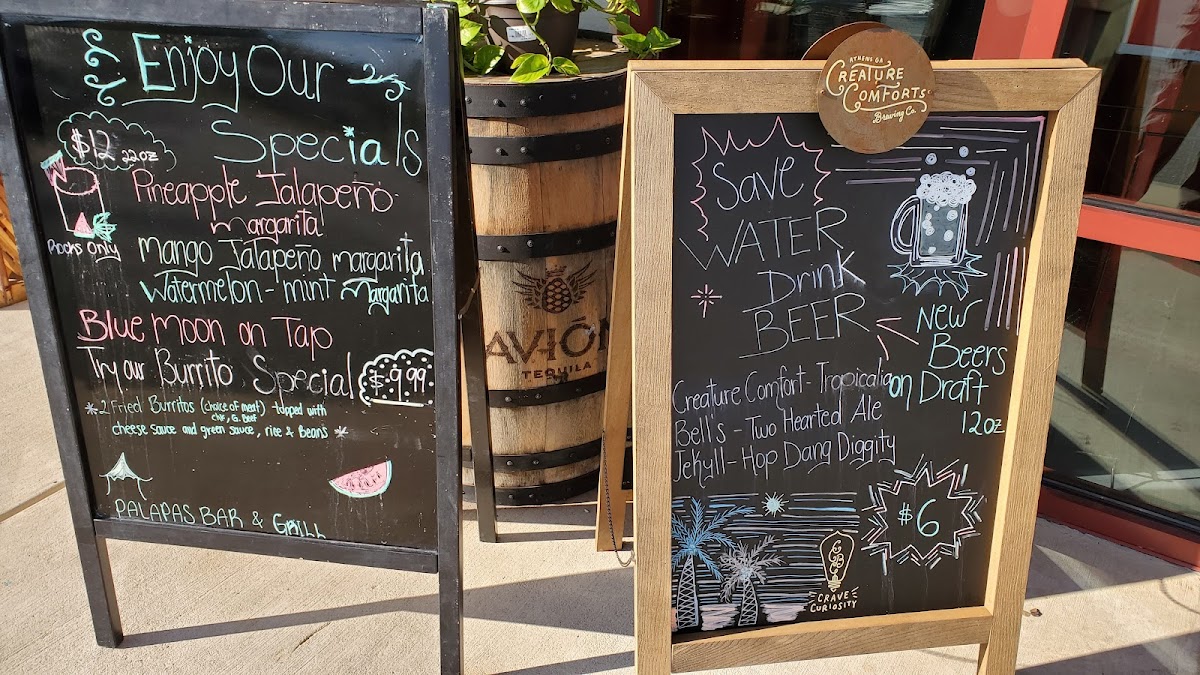 Enjoy Our
Specials
$12 22oz
Pineapple Jalapeño
Margarita
Rocks Only
Mango Jalapeño margarita
Watermelon-mint Margarita
Blue Moon on Tap
Try our Burrito Special $9.99
*2 Fried Burritos (choice of meat) topped with
chix, G. Beef
cheese sauce and green sauce, rice & Beans *
PALAPAS BAR & GRILL
AVIÓN
TEQUILA
ATHENS GA
CREATURE
COMFORTS
Brewing Co.
Save
WATER
Drink
BEER
New
Beers
on Draft
12oz
Creature Comfort-Tropicalia
Bell's-Two Hearted Ale
Jekyll-Hop Dang Diggity
$6
CRAVE
CURIOSITY